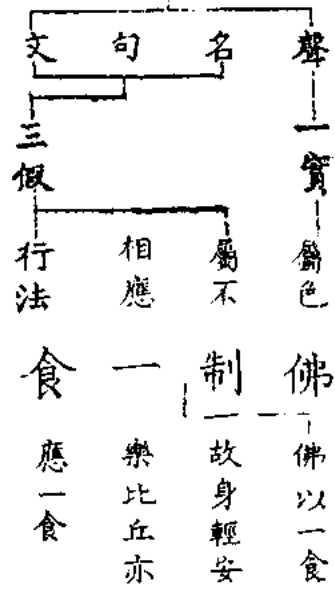 聲名句文
一實
三假
屬色
屬不相應行法
佛制一食
佛以一食故身輕安樂比丘亦應一食